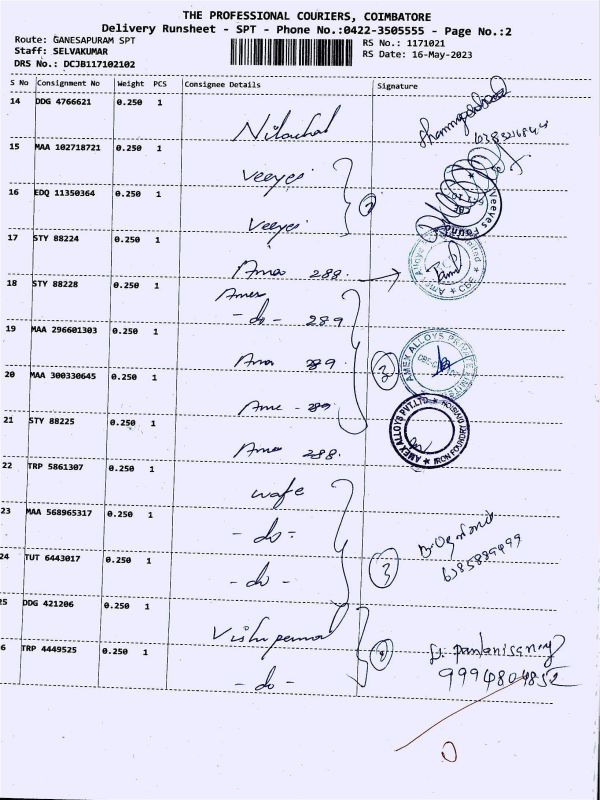 THE PROFESSIONAL COURIERS, COIMBATORE
Delivery Runsheet - SPT - Phone No.:0422-3505555 - Page No.:2
Route: GANESAPURAM SPT
RS No.: 1171021
Staff: SELVAKUMAR
RS Date: 16-May-2023
DRS No.: DCJB117102102
S No Consignment No Weight PCS Consignee Details Signature
14 DDG 4766621 0.250 1
15 MAA 102718721 0.250 1
Veeyes
16 EDQ 11350364 0.250 1
Veeyes
17 STY 88224 0.250 1
288
18 STY 88228 0.250 1
- do - 289
19 MAA 296601303 0.250 1
289
20 MAA 300330645 0.250 1
289
21 STY 88225 0.250 1
288.
22 TRP 5861307 0.250 1
wafe
23 MAA 568965317 0.250 1
- do -
24 TUT 6443017 0.250 1
- do -
3
6385889499
25 DDG 421206 0.250 1
6 TRP 4449525 0.250 1
- do -
9994804852
AMEX ALLOYS PRIVATE LIMITED
AMEX ALLOYS PVT.LTD ★ IRON FOUNDRY